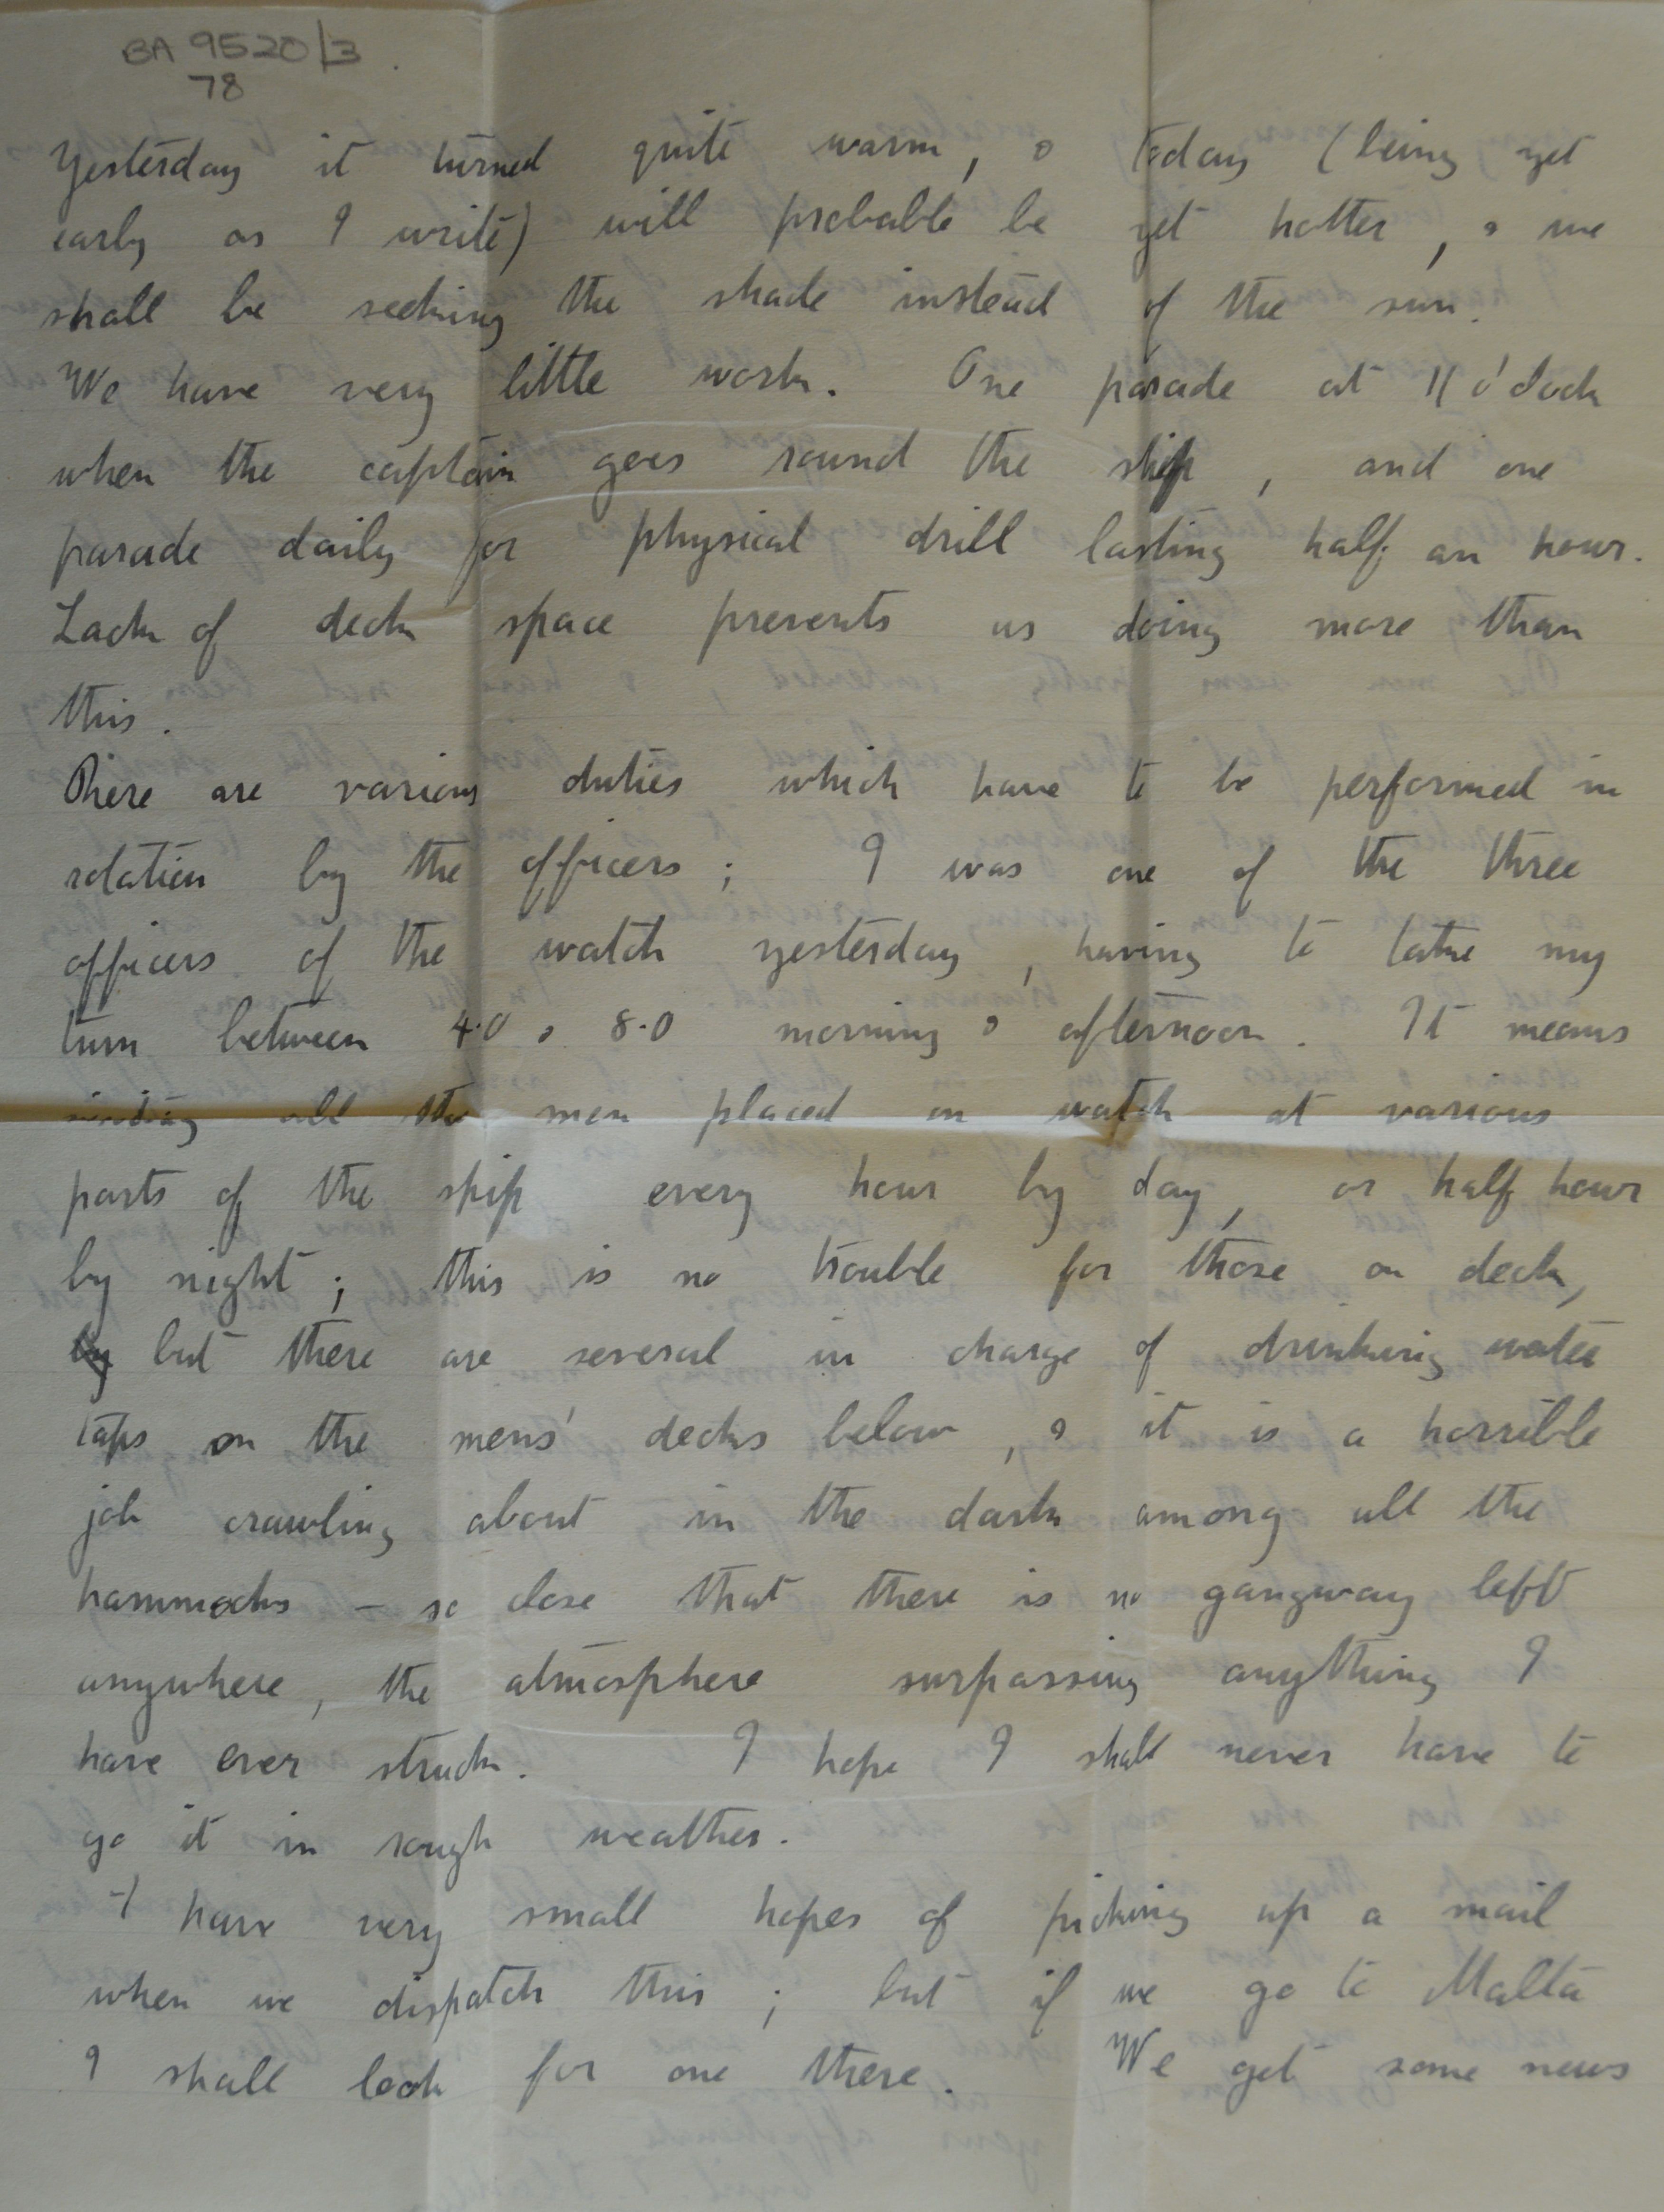 BA 9520/3
78
Yesterday it turned quite warm, & today (being yet
early as I write) will probable be yet hotter, & we
shall be seeking the shade instead of the sun.
We have very little work. One parade at 11 o'clock
when the captain goes round the ship, and one
parade daily for physical drill lasting half an hour.
Lack of deck space prevents us doing more than
this.
There are various duties which have to be performed in
rotation by the officers; I was one of the three
officers of the watch yesterday, having to take my
turn between 4.0 & 8.0 morning & afternoon. It means
visiting all the men placed on watch at various
parts of the ship every hour by day, or half hour
by night; this is no trouble for those on deck,
by but there are several in charge of drinking water
taps on the mens' decks below, & it is a horrible
job crawling about in the dark among all the
hammocks – so close that there is no gangway left
anywhere, the atmosphere surpassing anything I
have ever struck. I hope I shall never have to
go it in rough weather.
I have very small hopes of picking up a mail
when we dispatch this; but if we go to Malta
I shall look for one there. We get some news